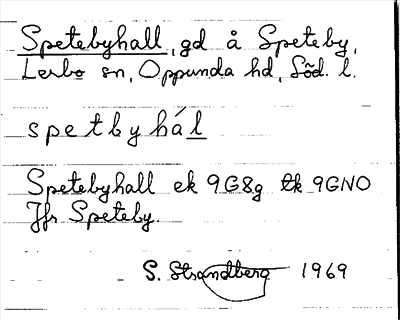 Spetebyhall, gd å Speteby,
Lerbo sn, Oppunda hd, Söd. l.
spetbyhál
Spetebyhall ek 9G8g tk 9GNO
Jfr Speteby.
S. Strandberg 1969